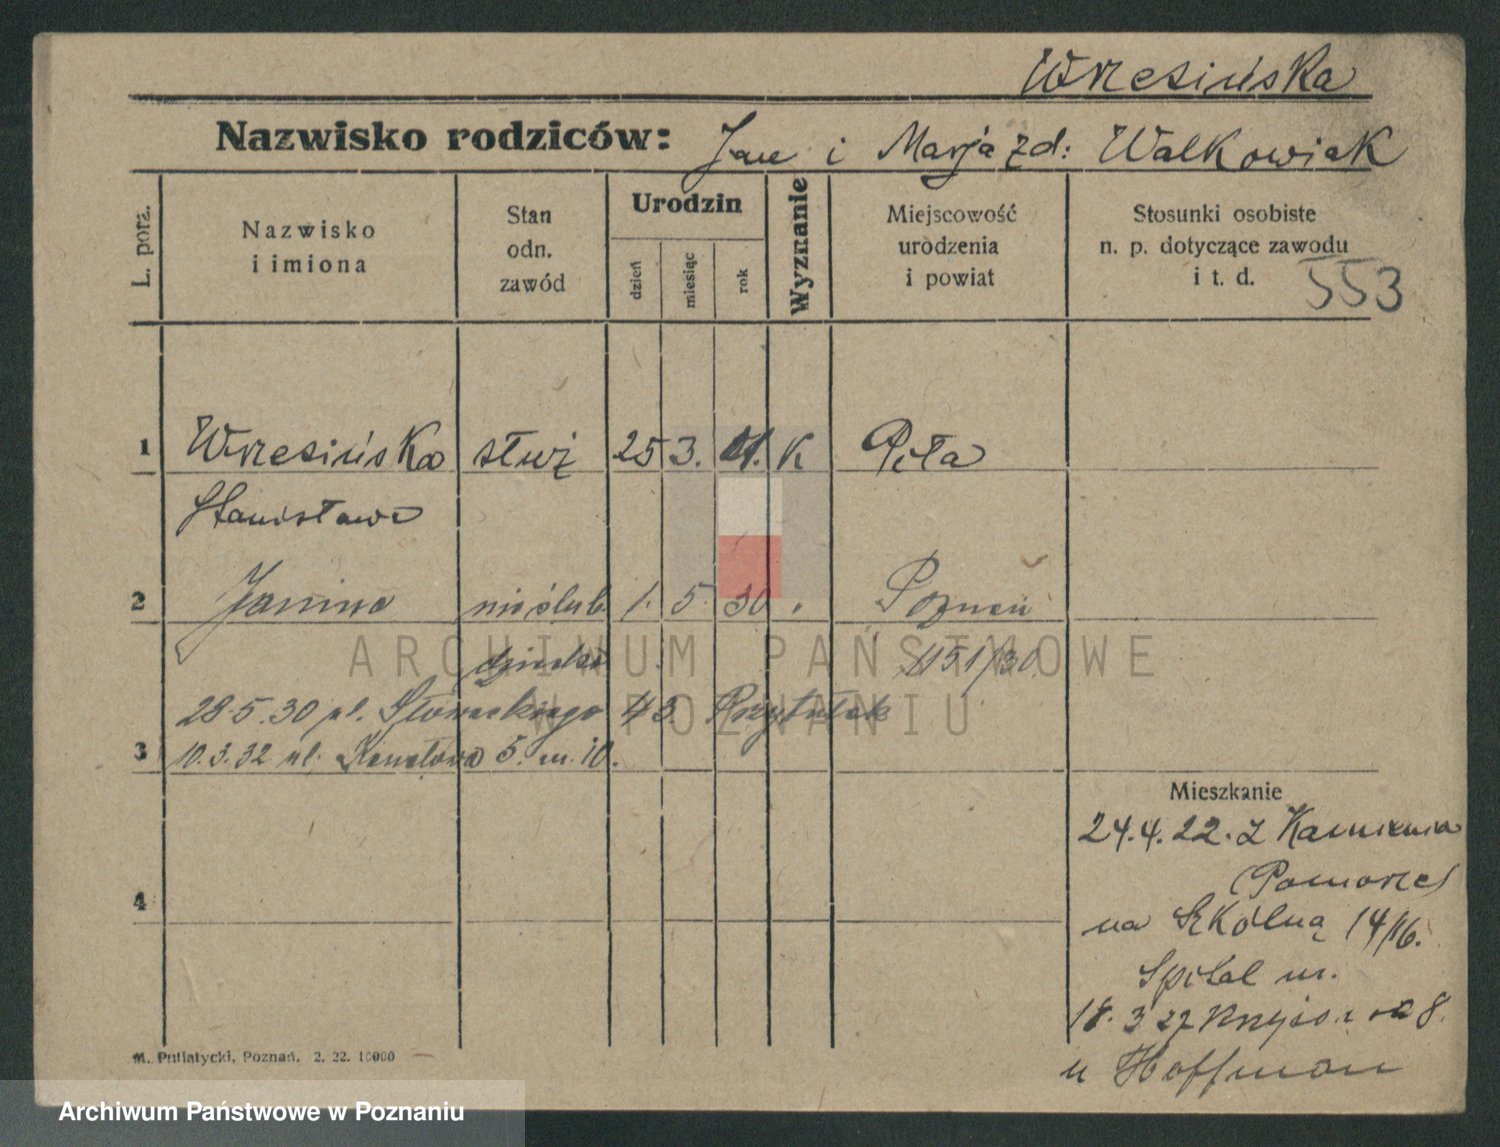 Wrzesińska
Nazwisko rodziców: Jan i Marja zd: Walkowiak
L. porz.
Nazwisko
i imiona
Stan
odn.
zawód
Urodzin
dzień
miesiąc
rok
Wyznanie
Miejscowość
urodzenia
i powiat
Stosunki osobiste
n. p. dotyczące zawodu
i t. d.
553
1 Wrzesińska służ 25 3. 01. K Piła
Stanisława
2 Janina nieślub. 1. 5. 30 Poznań
dziecko 1151/30
28.5.30 pl. Słowackiego 43. Przytułek
3 10.3.32 ul. Kanałowa 5. m. 10.
Mieszkanie
24.4.22. z Kamienia
(Pomorze)
4
na Szkólną 14/16.
Szpital m.
18. 3 27 8.
u Hoffman
M. Putiatycki, Poznań. 2. 22. 10000
ARCHIWUM PAŃSTWOWE
W POZNANIU
Archiwum Państwowe w Poznaniu